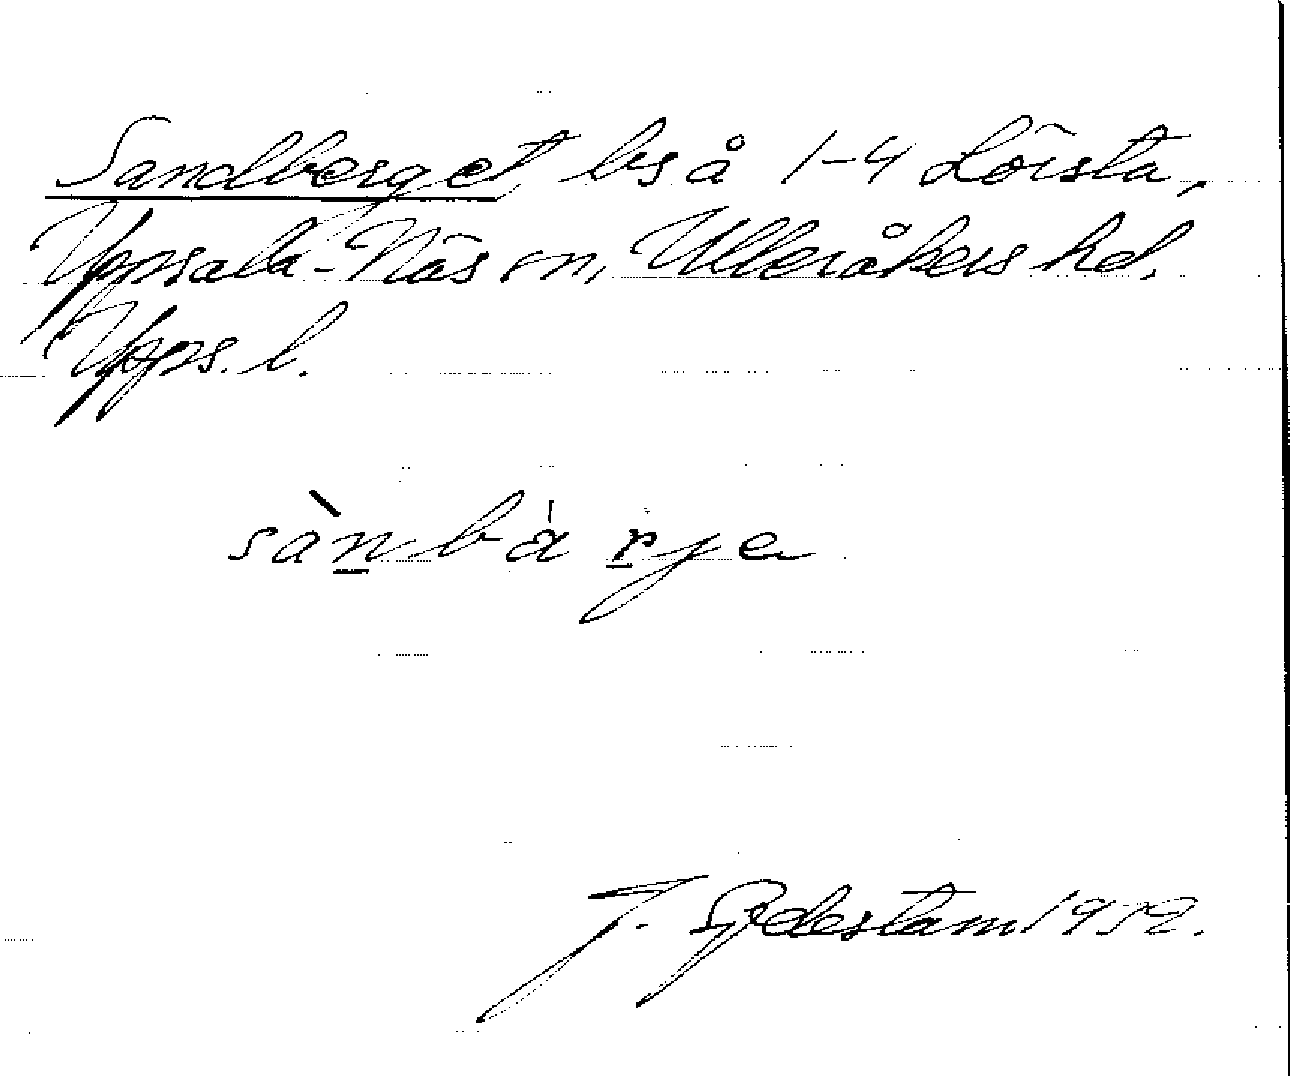 Sandberget bs å 1-4 Lörsta,
Uppsala-Näs sn, Ulleråkers hd.
Upps. l.
sànbàrja
J. Sydestam 1952.